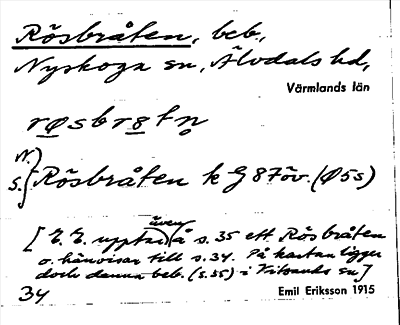 Rösbråten, beb.,
Nyskoga sn, Älvdals hd,
Värmlands län
røsbrøtn̥
N.
S. } Rösbråten k G 87öv. (Ø 5s)
[E. E. upptar även å s. 35 ett Rösbråten
o. hänvisar till s. 34. På kartan ligger
dock denna beb. (s. 35) i Vitsands sn]
34 Emil Eriksson 1915